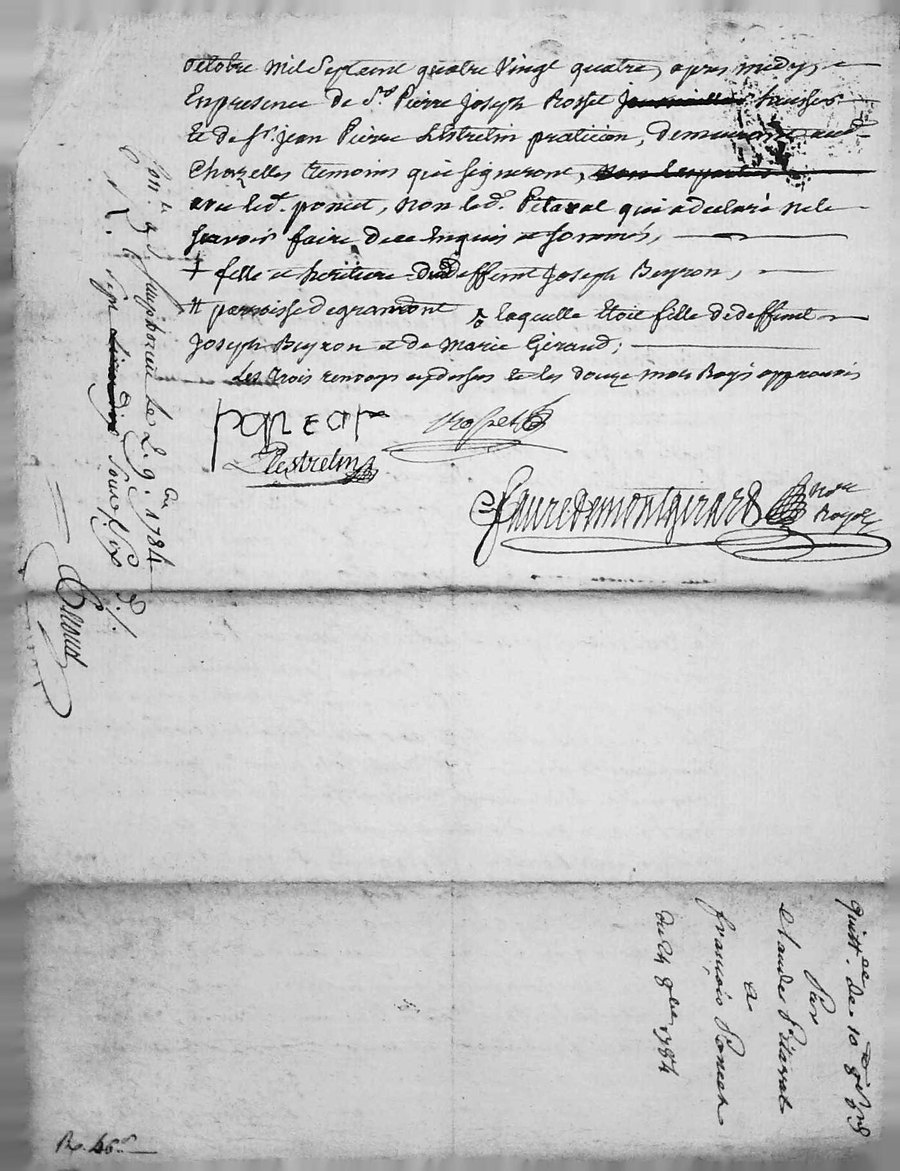 octobre mil Sept cent quatre Vingt quatre, apres midy,
En presence de Sr. Pierre Joseph Rosset huissier
Et de Sr. Jean Pierre Lestrelin praticien, demeurant aud.
Chazelles temoins qui signeront,
avec led. poncet, non led. Pitaval qui a declaré ne le
scavoir faire de ce Enquis et sommés,
+ fille et heritiere dud deffunt Joseph Beyron,
# paroisse de gramont laquelle Etoit fille de deffunt
Joseph Beyron et de Marie Geraud;
Les trois renvoys cy dessus et les douze mots Rayés approuvés
poncet
Rosset
Lestrelin
fauredemontgirard
Nore
Royal
Con.le à St. Simphorien le 2. 9.bre 1784
R. sept sous six d.
quitt.ce de 10
Par
Claude Pitaval
a
françois Poncet
du 24 8bre 1784
R. 46